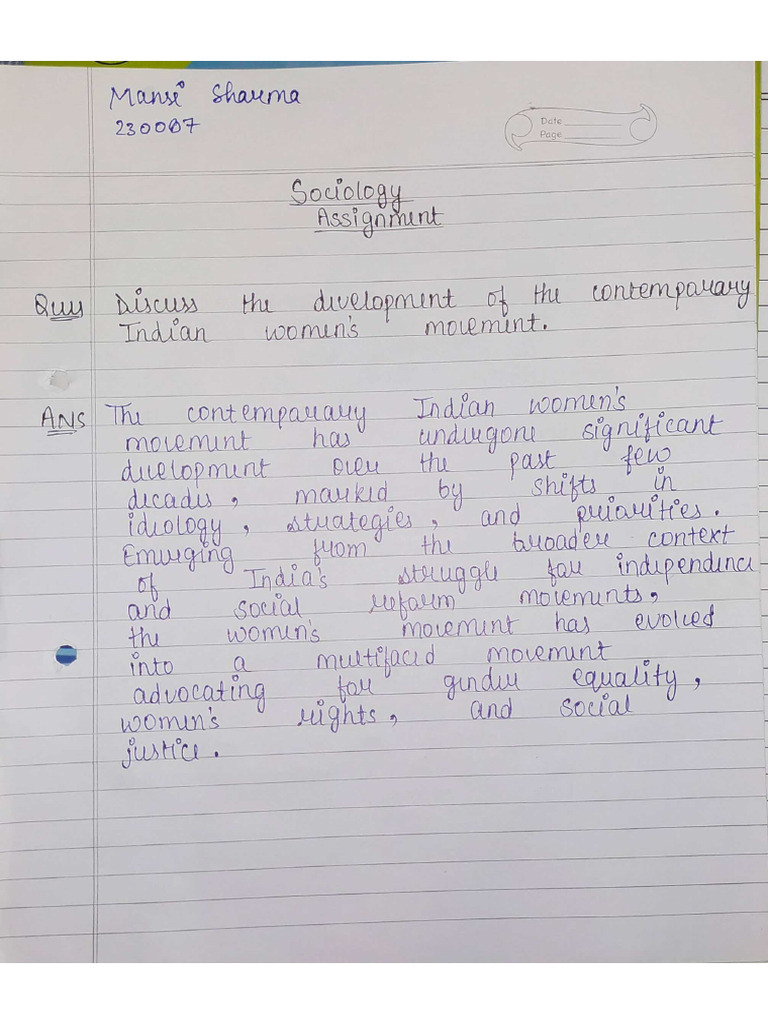 Mansi Sharma
230007
Date
Page
Sociology
Assignment
Discuss the development of the contemparary
Indian women's movement.
ANS The contemparary Indian women's
movement has undergone significant
development over the past few
decades, marked by shifts in
ideology, strategies, and priorities.
Emerging from the broader context
of India's struggle for independence
and social reform movements,
the women's movement has evolved
into a multifaced movement
advocating for gender equality,
women's rights, and social
justice.